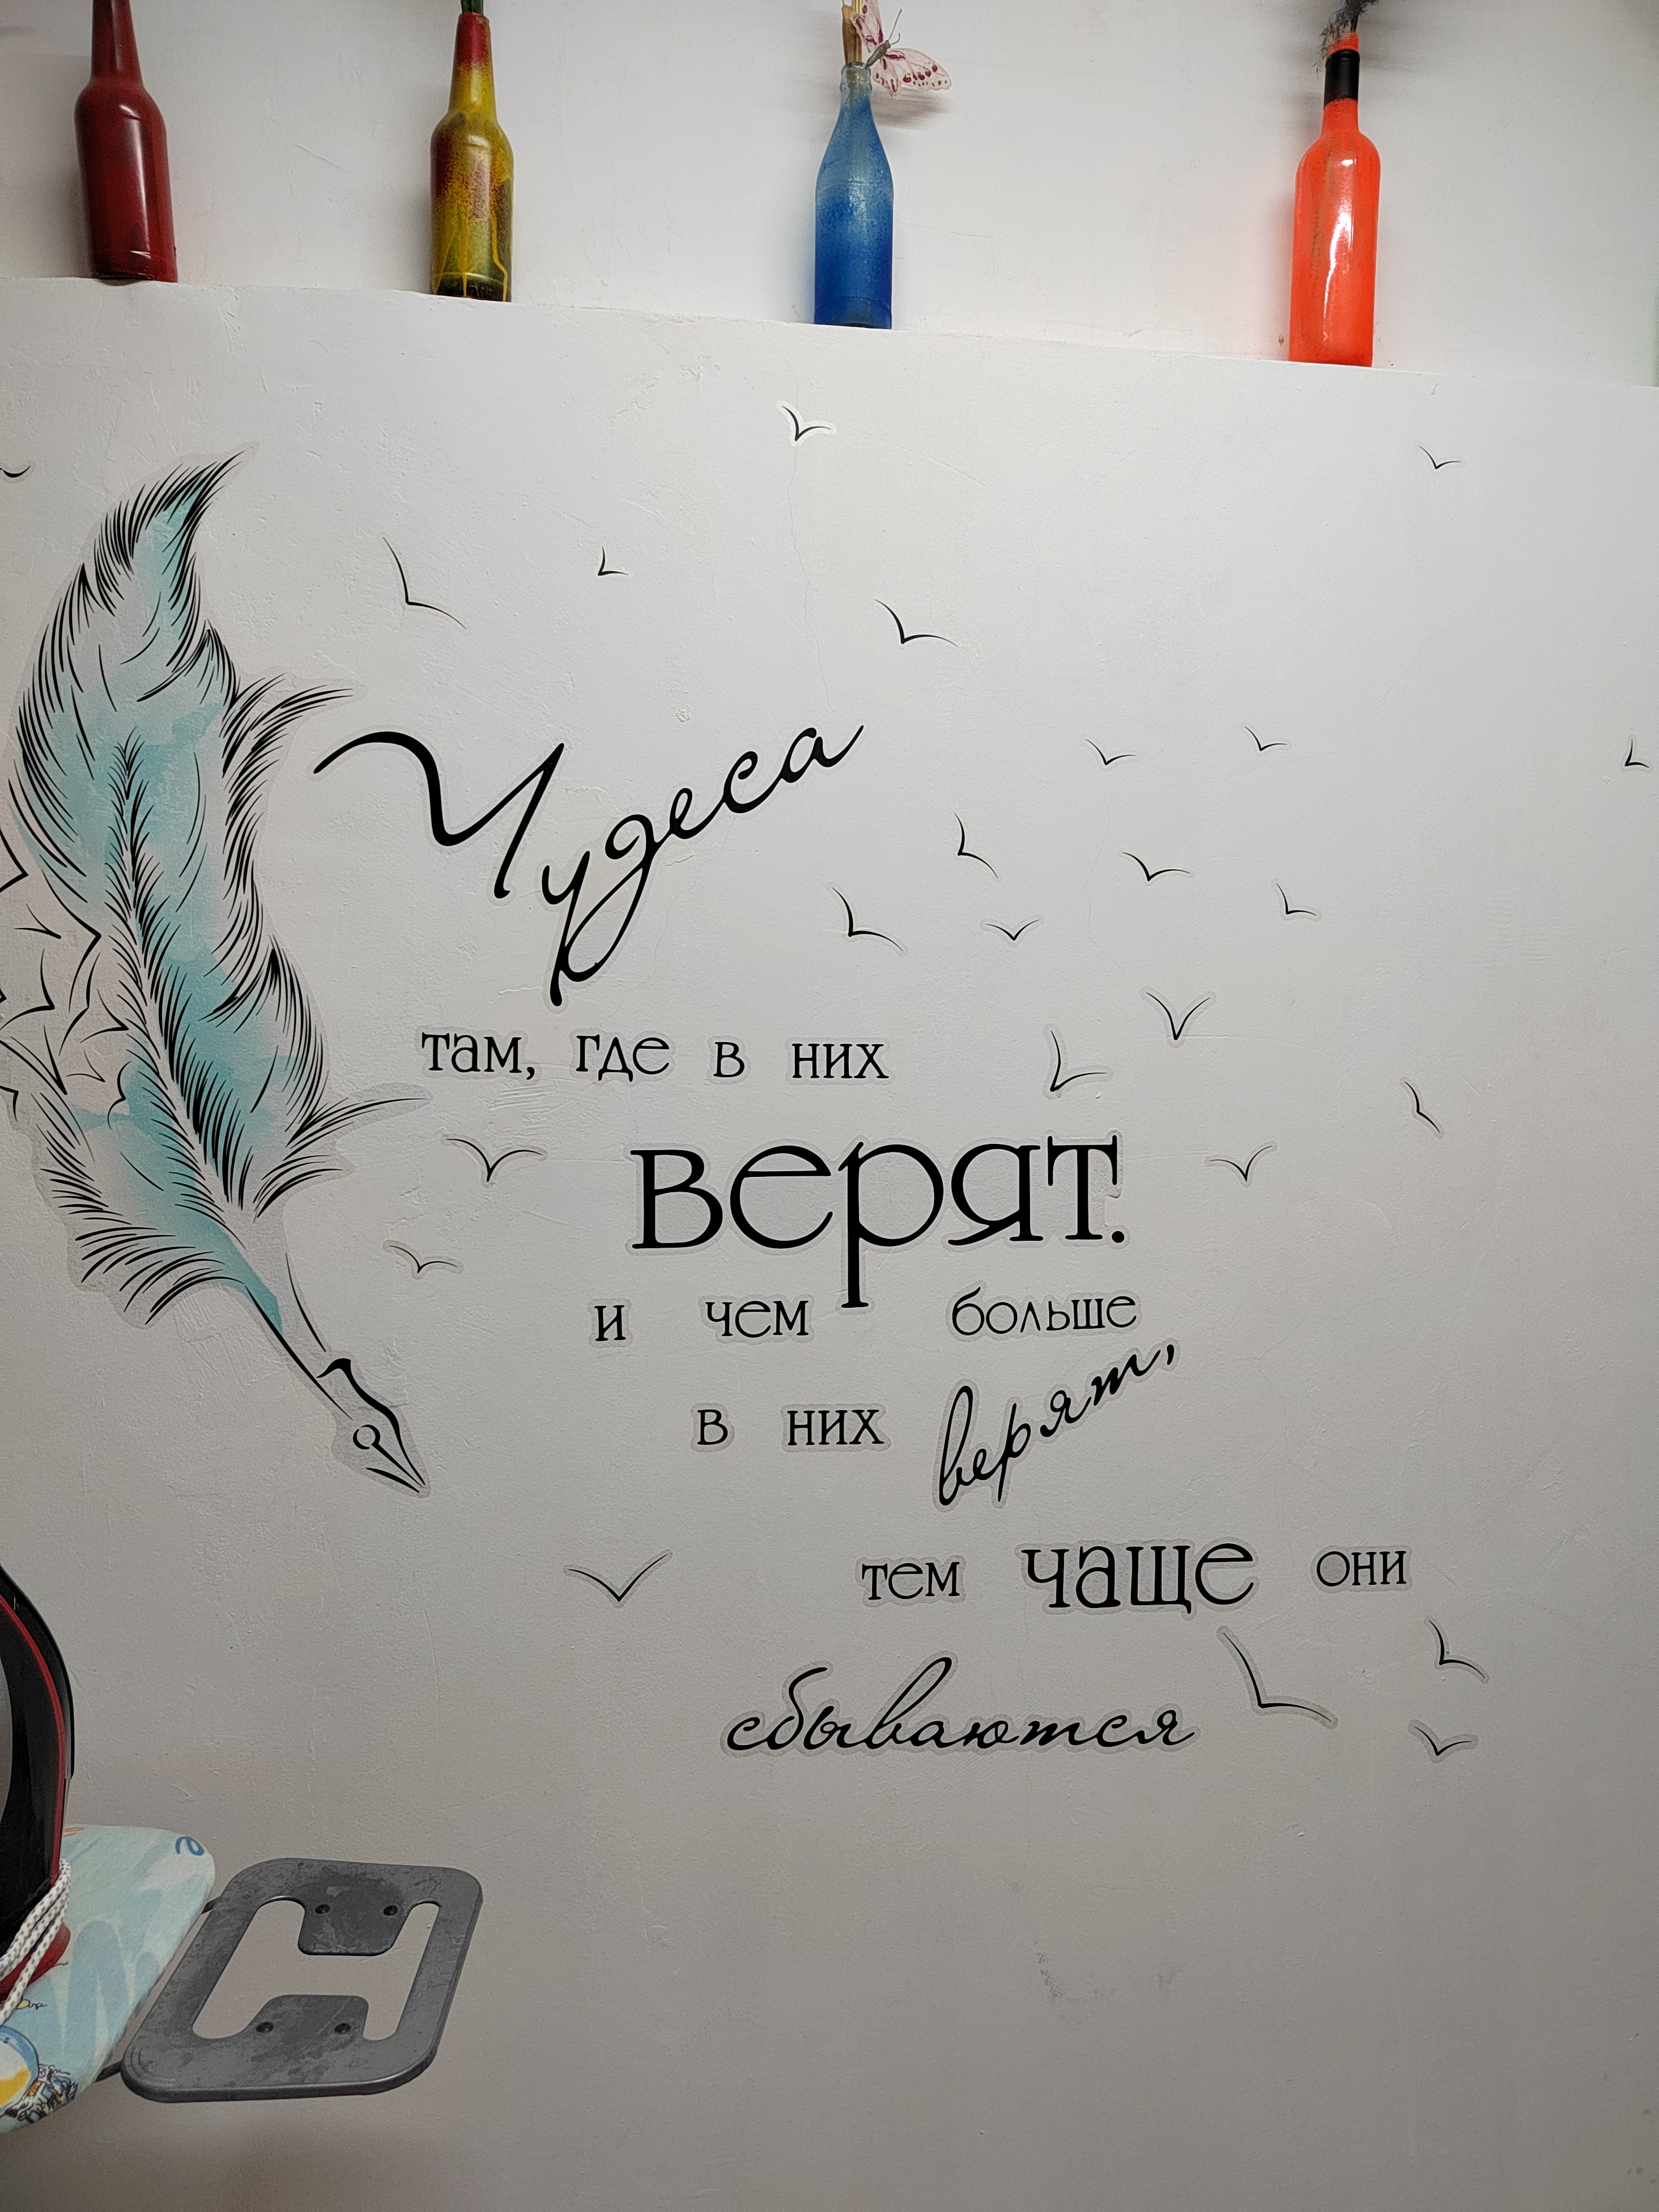 Чудеса
там, где в них
верят.
и чем больше
в них верят,
тем чаще они
сбываются